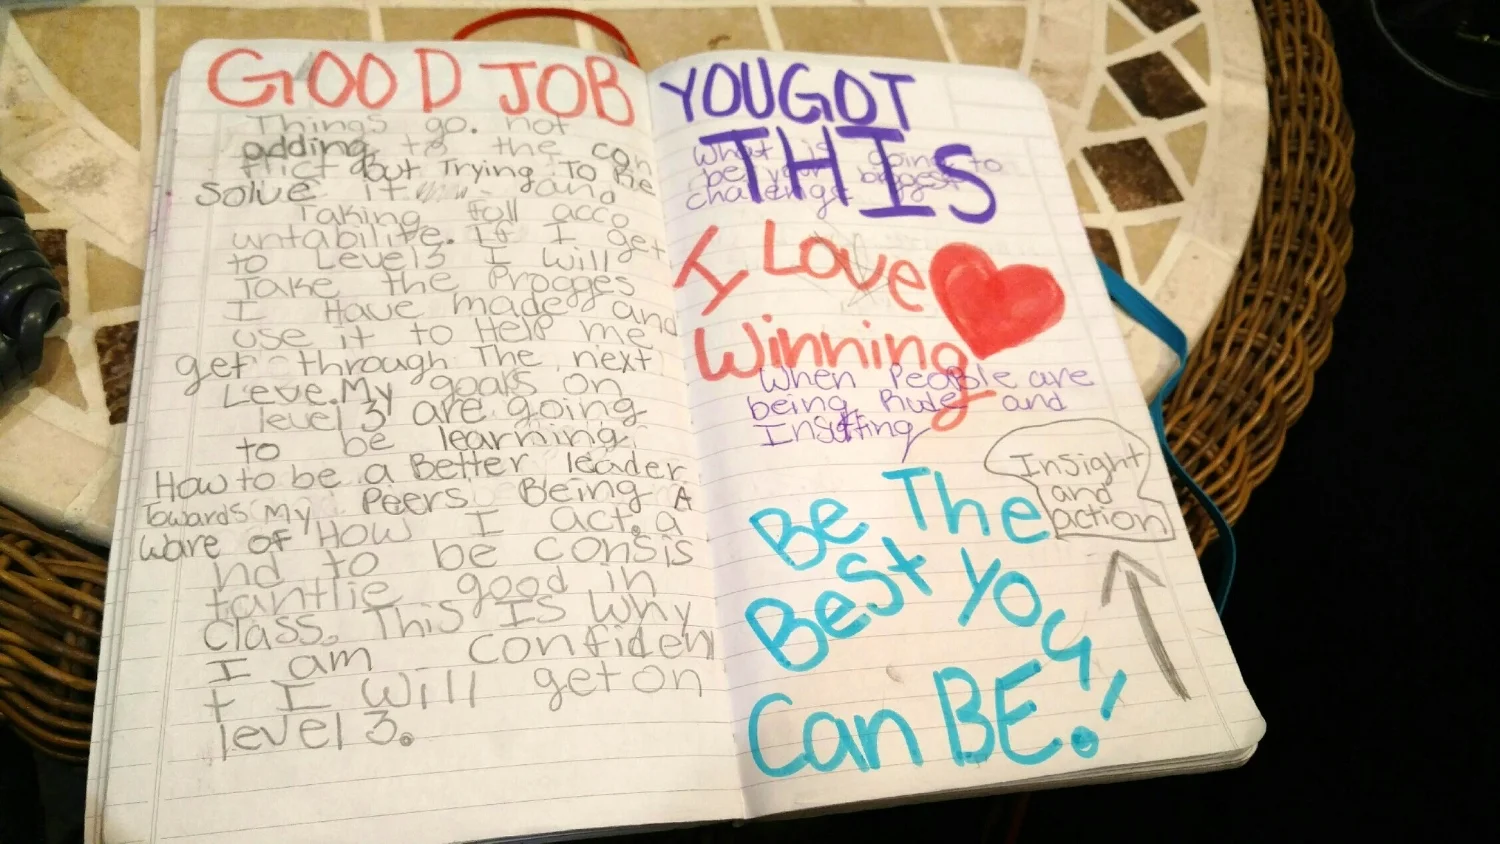 GOOD JOB
Things go. not
adding to the con
flict but Trying To Re
solve it and
Taking full acco
untabilite. If I get
to Level 3 I will
Take the Progges
I Have made and
use it to Help me
get through The next
Leve. My goals on
level 3 are going
to be learning
How to be a Better leader
Towards My Peers Being A
ware of How I act. a
nd to be consis
tantlie good in
class. This Is Why
I am confiden
t I will get on
level 3.
YOU GOT
THIS
What is going to
be your biggest
challenge
I Love
Winning
When People are
being Rude and
Insulting
Insight
and
action
Be The
Best You
Can BE!